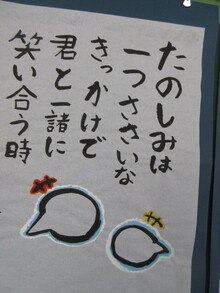 たのしみは
一つささいな
きっかけで
君と一諸に
笑い合う時